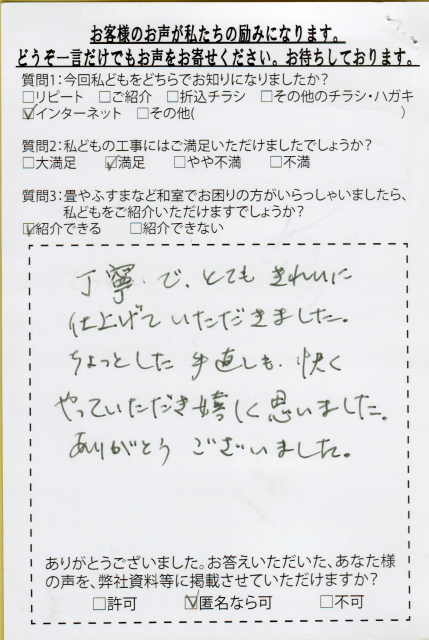 お客様のお声が私たちの励みになります。
どうぞ一言だけでもお声をお寄せください。お待ちしております。
質問1:今回私どもをどちらでお知りになりましたか?
□リピート □ご紹介 □折込チラシ □その他のチラシ・ハガキ
☑インターネット □その他( )
質問2:私どもの工事にはご満足いただけましたでしょうか?
□大満足 ☑満足 □やや不満 □不満
質問3:畳やふすまなど和室でお困りの方がいらっしゃいましたら、
私どもをご紹介いただけますでしょうか?
☑紹介できる □紹介できない
丁寧で、とてもきれいに
仕上げていただきました。
ちょっとした手直しも、快く
やっていただき嬉しく思いました。
ありがとうございました。
ありがとうございました。お答えいただいた、あなた様
の声を、弊社資料等に掲載させていただけますか?
□許可 ☑匿名なら可 □不可